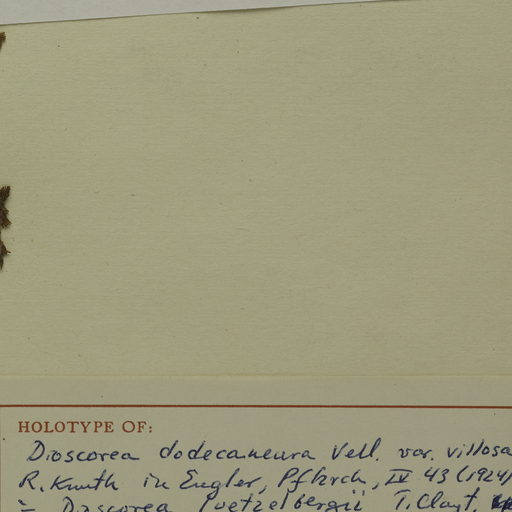 HOLOTYPE OF:
Dioscorea dodecaneura Vell. var. villosa
R. Knuth in Engler, Pflzrch, IV 43 (1924)
= Dioscorea luetzelbergii T. Clayt.